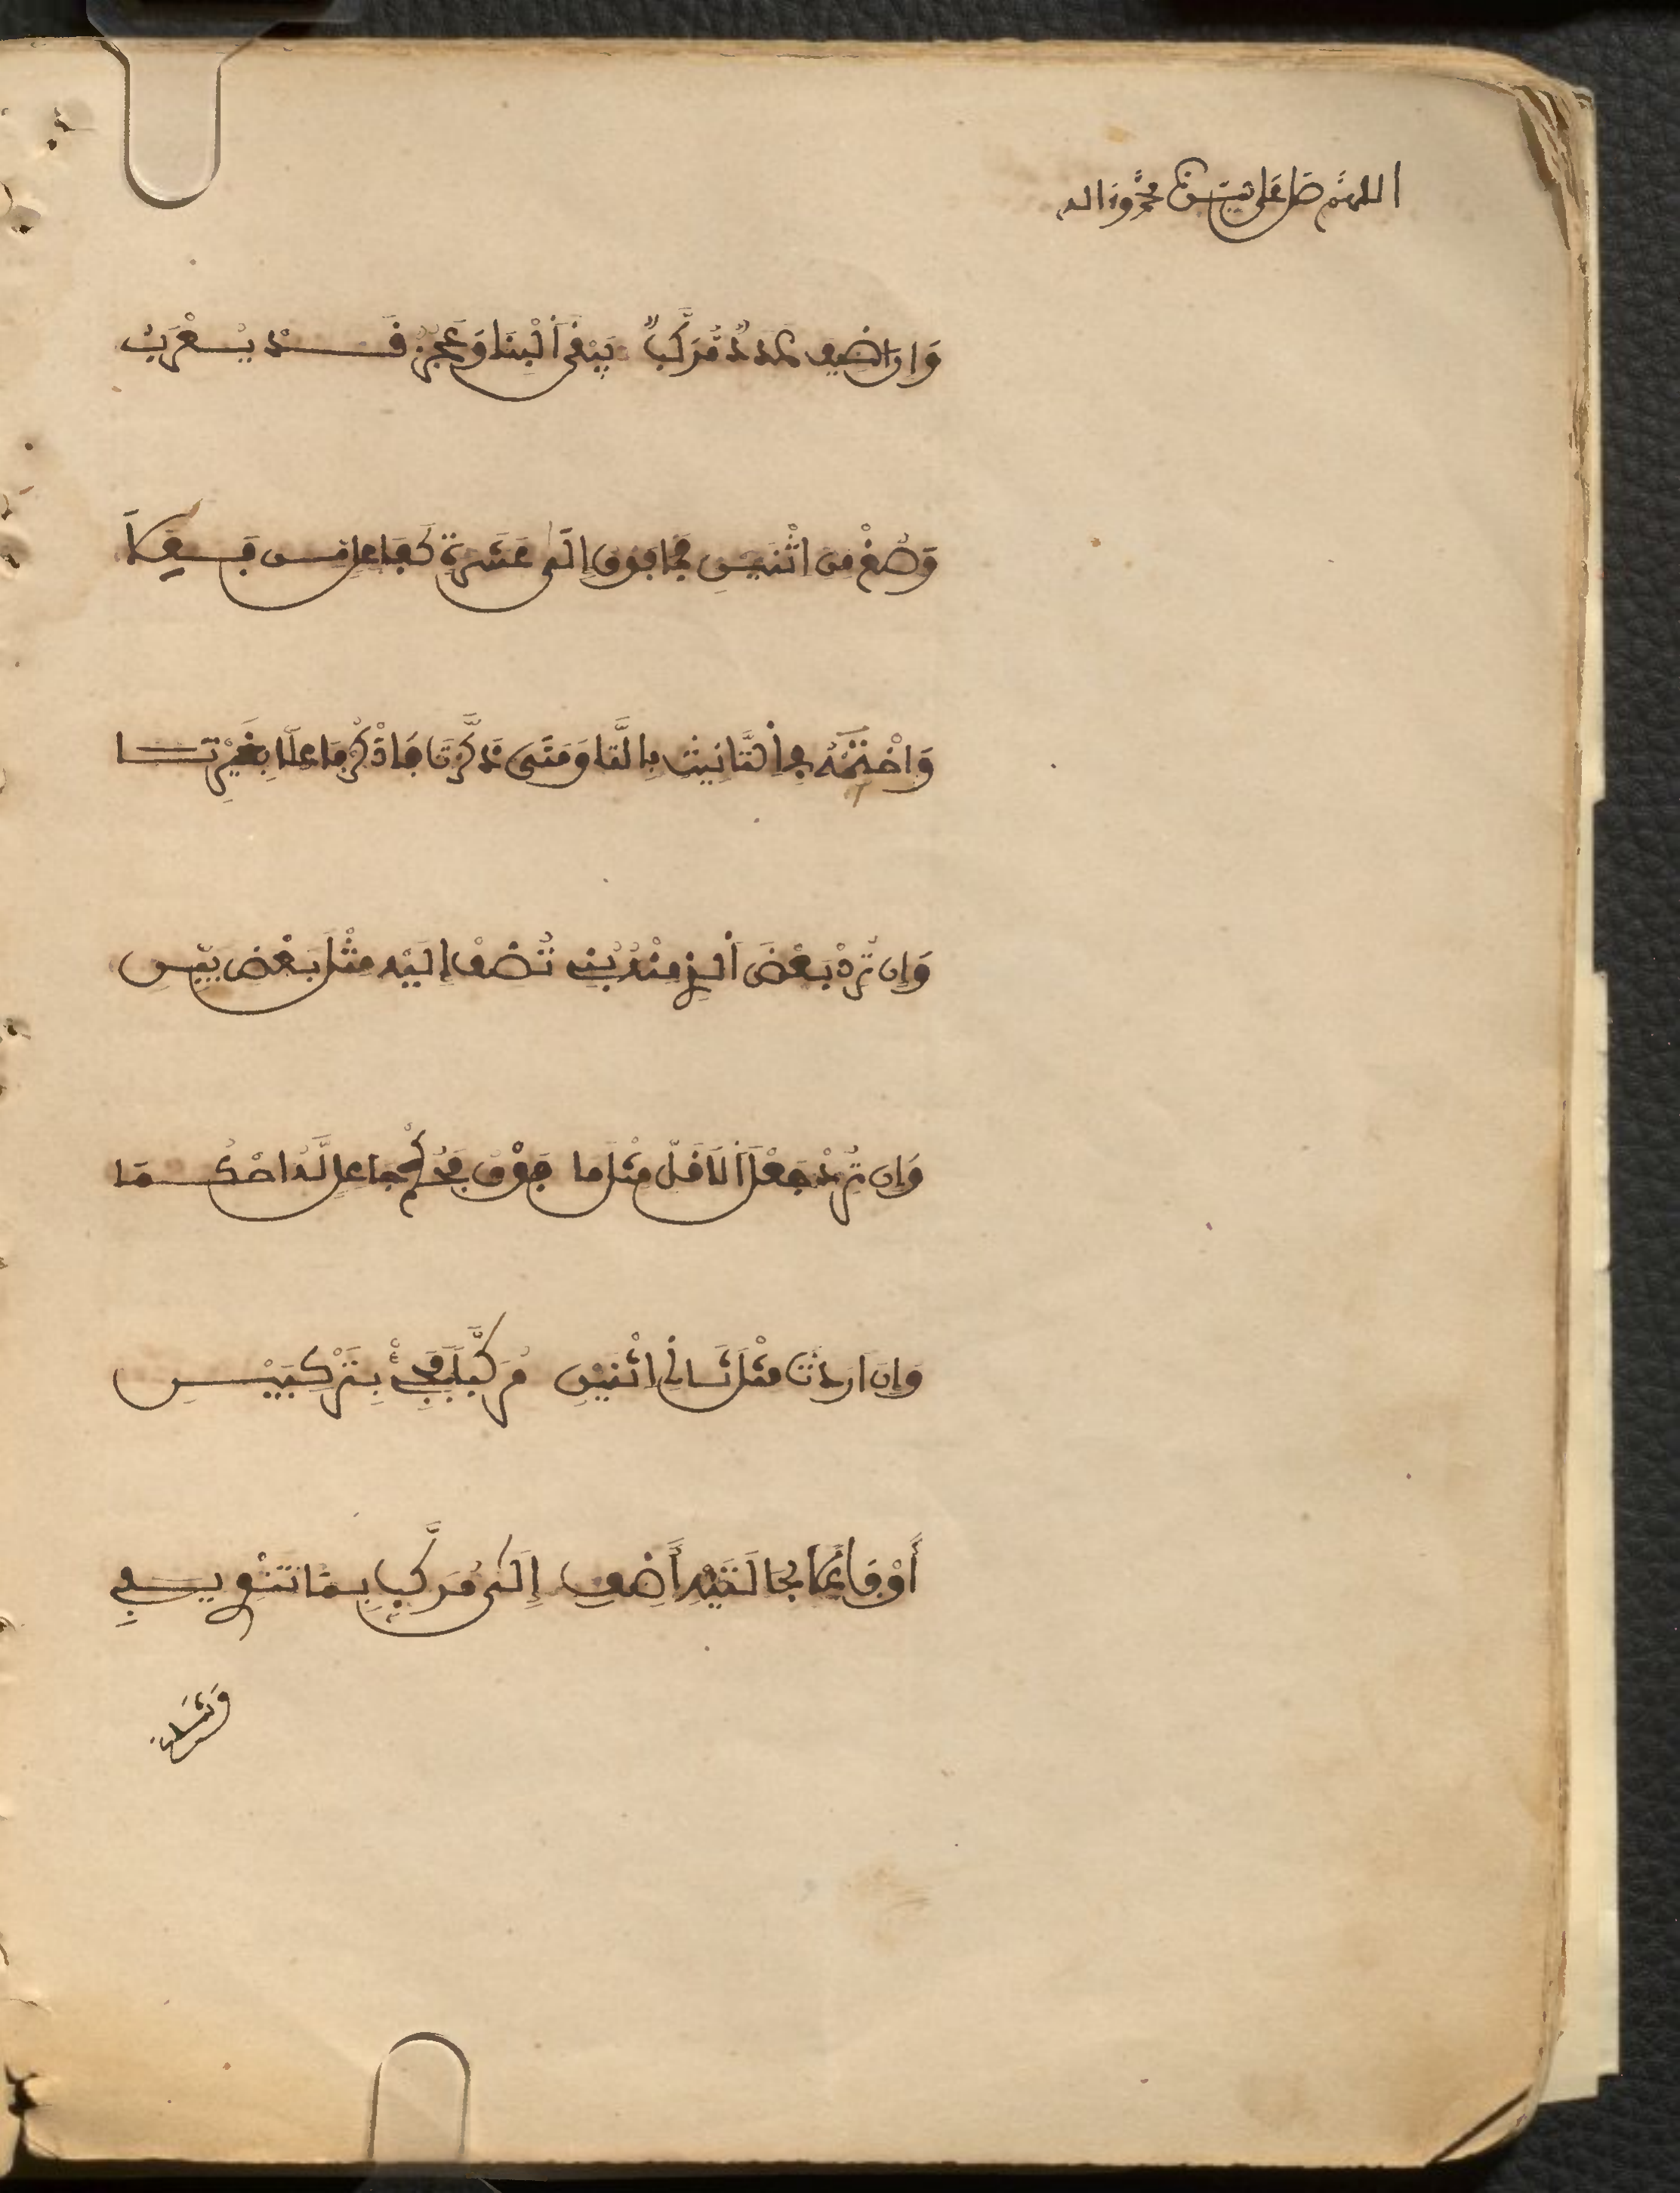 اللهم صل على نبينا محمد وءاله
وَإِن اضيف عَدَدٌ مُرَكَّبٌ يَبْقَى اَلْبِنَا وَعَجُزٌ قَد يُعْرَبُ
وَصُغْ مِنَ اثْنَيْنِ فَمَا فَوْقَ إِلَى عَشَرَةٍ كَفَاعِلٍ مِن فَعَلَا
وَاخْتِمْهُ فِى اَلتَّانِيثِ بِالتَّا وَمَتَى ذَكَّرْتَ فَاذْكُرْ فَاعِلًا بِغَيْرِ تَا
وَإِن تُرِدْ بَعْضَ اَلَّذِى مِنْهُ بُنِى تُضِفْ إِلَيْهِ مِثْلَ بَعْضٍ بَيِّنِ
وَإِن تُرِدْ جَعْلَ اَلَاقَلِّ مِثْلَ مَا فَوْقُ فَحُكْمَ جَاعِلٍ لَّهُ احْكُمَا
وَإِنَ ارَدتَّ مِثْلَ ثَانِى اثْنَيْنِ مُرَكَّبًا فَجِئْ بِتَرْكِيبَيْنِ
أَوْ فَاعِلًا بِحَالَتَيْهِ أَضِفِ إِلَى مُرَكَّبٍ بِمَا تَنْوِى يَفِى
وَشَاعَ